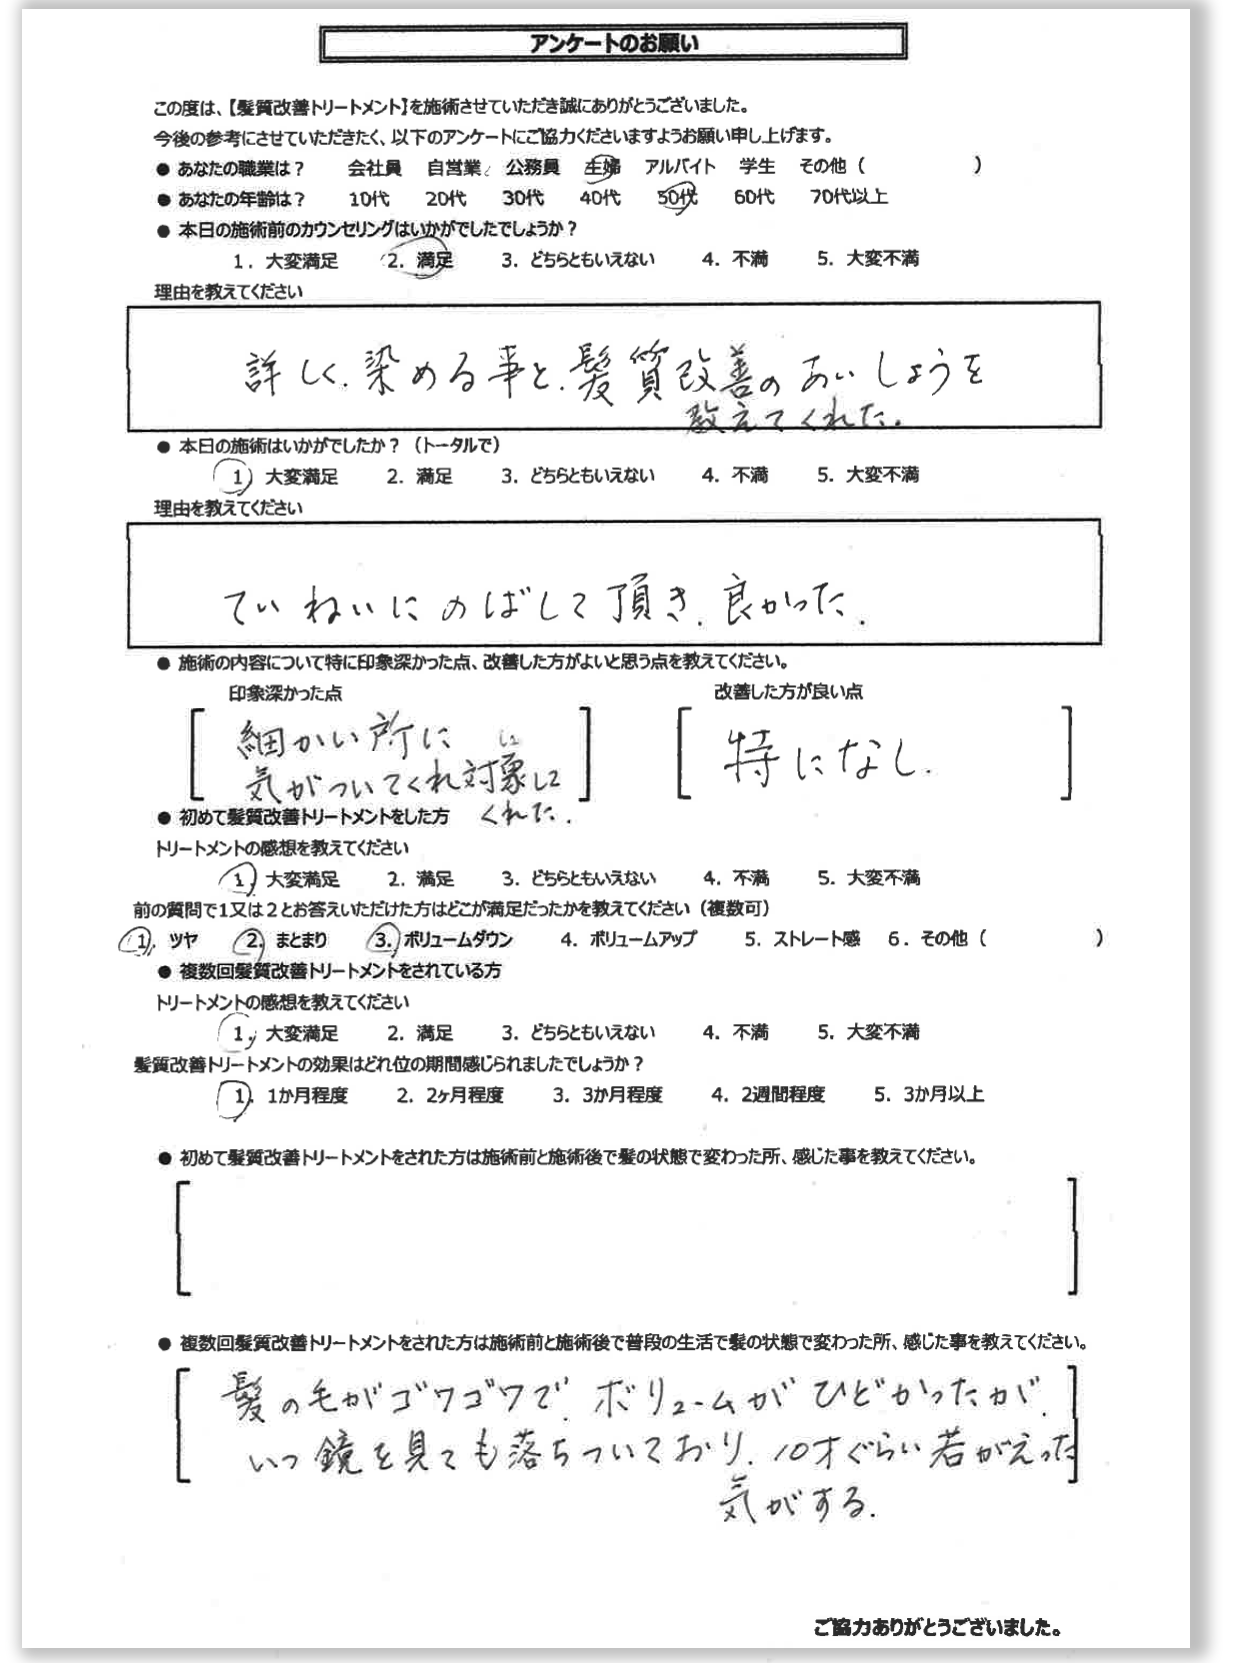 アンケートのお願い
この度は、【髪質改善トリートメント】を施術させていただき誠にありがとうございました。
今後の参考にさせていただきたく、以下のアンケートにご協力くださいますようお願い申し上げます。
● あなたの職業は？ 会社員 自営業 公務員 主婦 アルバイト 学生 その他（ ）
● あなたの年齢は？ 10代 20代 30代 40代 50代 60代 70代以上
● 本日の施術前のカウンセリングはいかがでしたでしょうか？
1．大変満足 2．満足 3．どちらともいえない 4．不満 5．大変不満
理由を教えてください
詳しく、染める事と、髪質改善のあいしょうを
教えてくれた。
● 本日の施術はいかがでしたか？（トータルで）
1．大変満足 2．満足 3．どちらともいえない 4．不満 5．大変不満
理由を教えてください
ていねいにのばして頂き、良かった。
● 施術の内容について特に印象深かった点、改善した方がよいと思う点を教えてください。
印象深かった点 改善した方が良い点
細かい所に
気がついてくれ対象にして
くれた。
特になし。
● 初めて髪質改善トリートメントをした方
トリートメントの感想を教えてください
1．大変満足 2．満足 3．どちらともいえない 4．不満 5．大変不満
前の質問で1又は2とお答えいただけた方はどこが満足だったかを教えてください（複数可）
1．ツヤ 2．まとまり 3．ボリュームダウン 4．ボリュームアップ 5．ストレート感 6．その他（ ）
● 複数回髪質改善トリートメントをされている方
トリートメントの感想を教えてください
1．大変満足 2．満足 3．どちらともいえない 4．不満 5．大変不満
髪質改善トリートメントの効果はどれ位の期間感じられましたでしょうか？
1．1か月程度 2．2ヶ月程度 3．3か月程度 4．2週間程度 5．3か月以上
● 初めて髪質改善トリートメントをされた方は施術前と施術後で髪の状態で変わった所、感じた事を教えてください。
● 複数回髪質改善トリートメントをされた方は施術前と施術後で普段の生活で髪の状態で変わった所、感じた事を教えてください。
髪の毛がゴワゴワで、ボリュームがひどかったが、
いつ鏡を見ても落ちついており、10才ぐらい若がえった
気がする。
ご協力ありがとうございました。